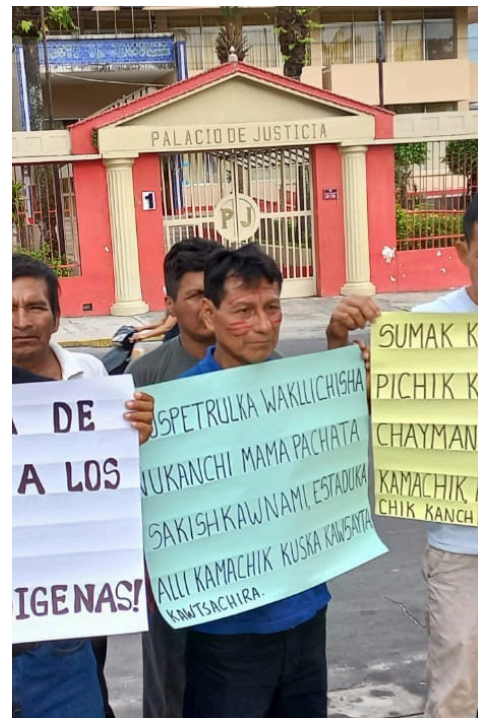 PALACIO DE JUSTICIA
1
P J
DE
A LOS
IGENAS!
USPETRULKA WAKLLICHISHA
ÑUKANCHI MAMA PACHATA
SAKISHKAWNAMI, ESTADUKA
ALLI KAMACHIK KUSKA KAWSAYTA
KAWTSACHIRA.
SUMAK K
PICHIK K
CHAYMAN
KAMACHIK,
CHIK KANCH